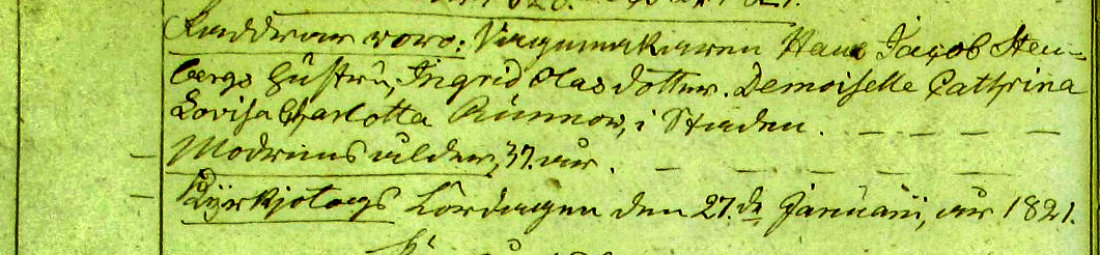 1821.
Faddrar voro: Vagnmakaren Hans Jacob Sten-
bergs Hustru, Ingrid Olas dotter. Demoiselle Cathrina
Lovisa Charlotta Rönnow, i Staden. — — — —
— Modrens ålder, 37. år. — — — — —
— Kyrkjotogs Lördagen den 27.de Januarii, år 1821.